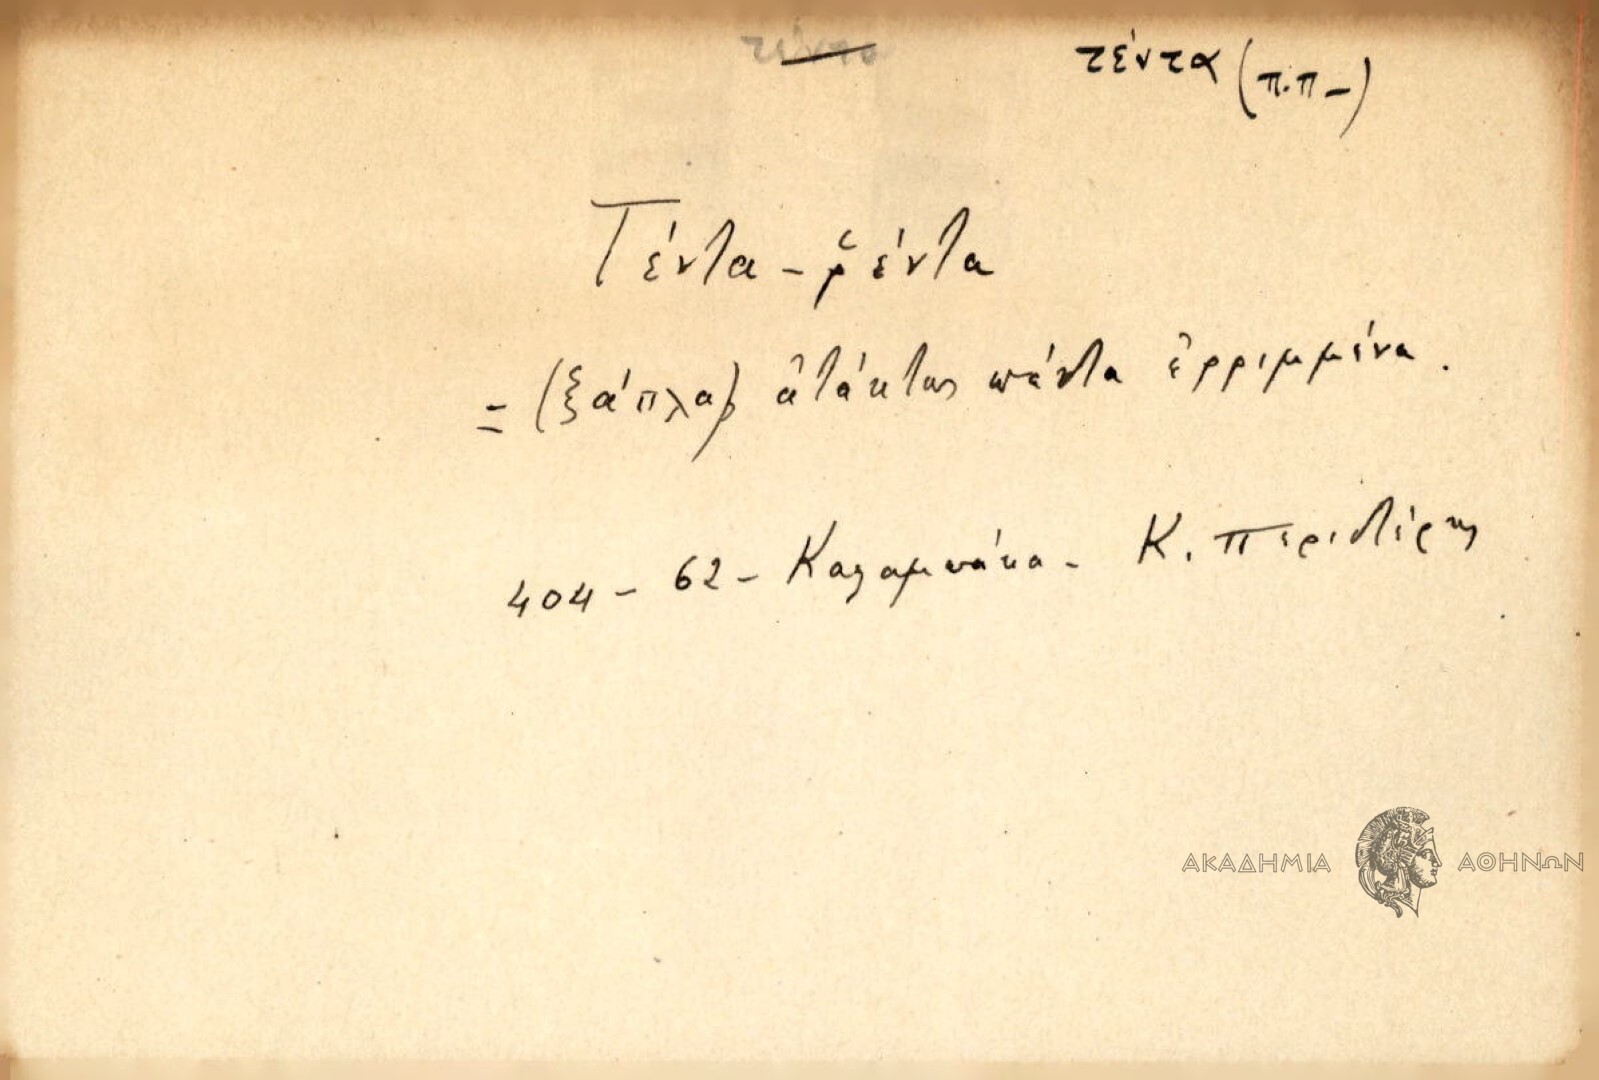 τέντα
τέντα (π.π-)
Τέντα - ῥέντα
= (ξάπλα) ἀτάκτως πάντα ἐρριμμένα.
404 - 62 - Καλαμπάκα - Κ. Περιστέρης
ΑΚΑΔΗΜΙΑ ΑΘΗΝΩΝ